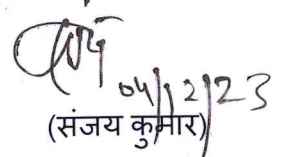 04/12/23
(संजय कुमार)